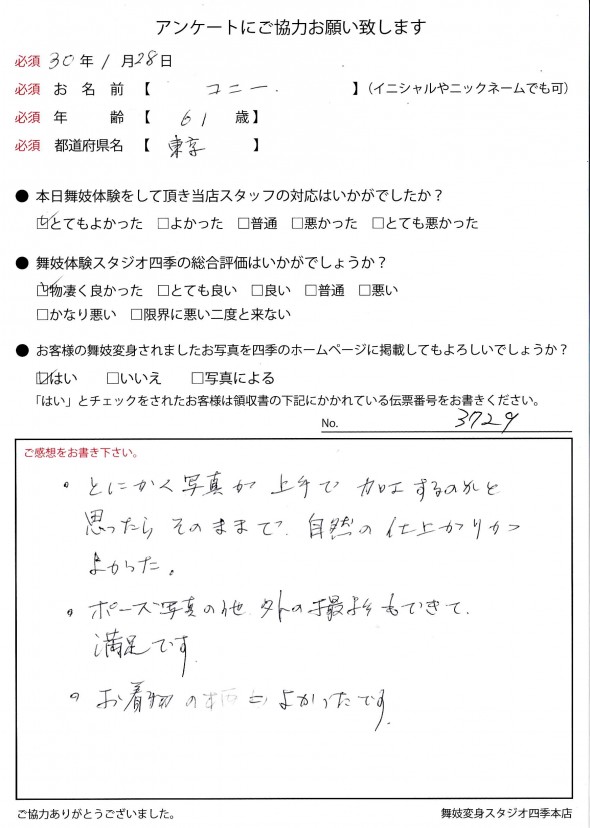 アンケートにご協力お願い致します
必須 30年1月28日
必須 お名前【 コニー. 】（イニシャルやニックネームでも可）
必須 年齢【 61 歳】
必須 都道府県名【 東京 】
● 本日舞妓体験をして頂き当店スタッフの対応はいかがでしたか？
☑とてもよかった □よかった □普通 □悪かった □とても悪かった
● 舞妓体験スタジオ四季の総合評価はいかがでしょうか？
☑物凄く良かった □とても良い □良い □普通 □悪い
□かなり悪い □限界に悪い二度と来ない
● お客様の舞妓変身されましたお写真を四季のホームページに掲載してもよろしいでしょうか？
☑はい □いいえ □写真による
「はい」とチェックをされたお客様は領収書の下記にかかれている伝票番号をお書きください。
No. 3729
ご感想をお書き下さい。
・とにかく写真が上手で加工するのかと
思ったらそのままで、自然の仕上がりがっ
よかった。
・ポーズ写真の他、外の撮影もできて、
満足です。
・お着物の柄もよかったです。
ご協力ありがとうございました。
舞妓変身スタジオ四季本店